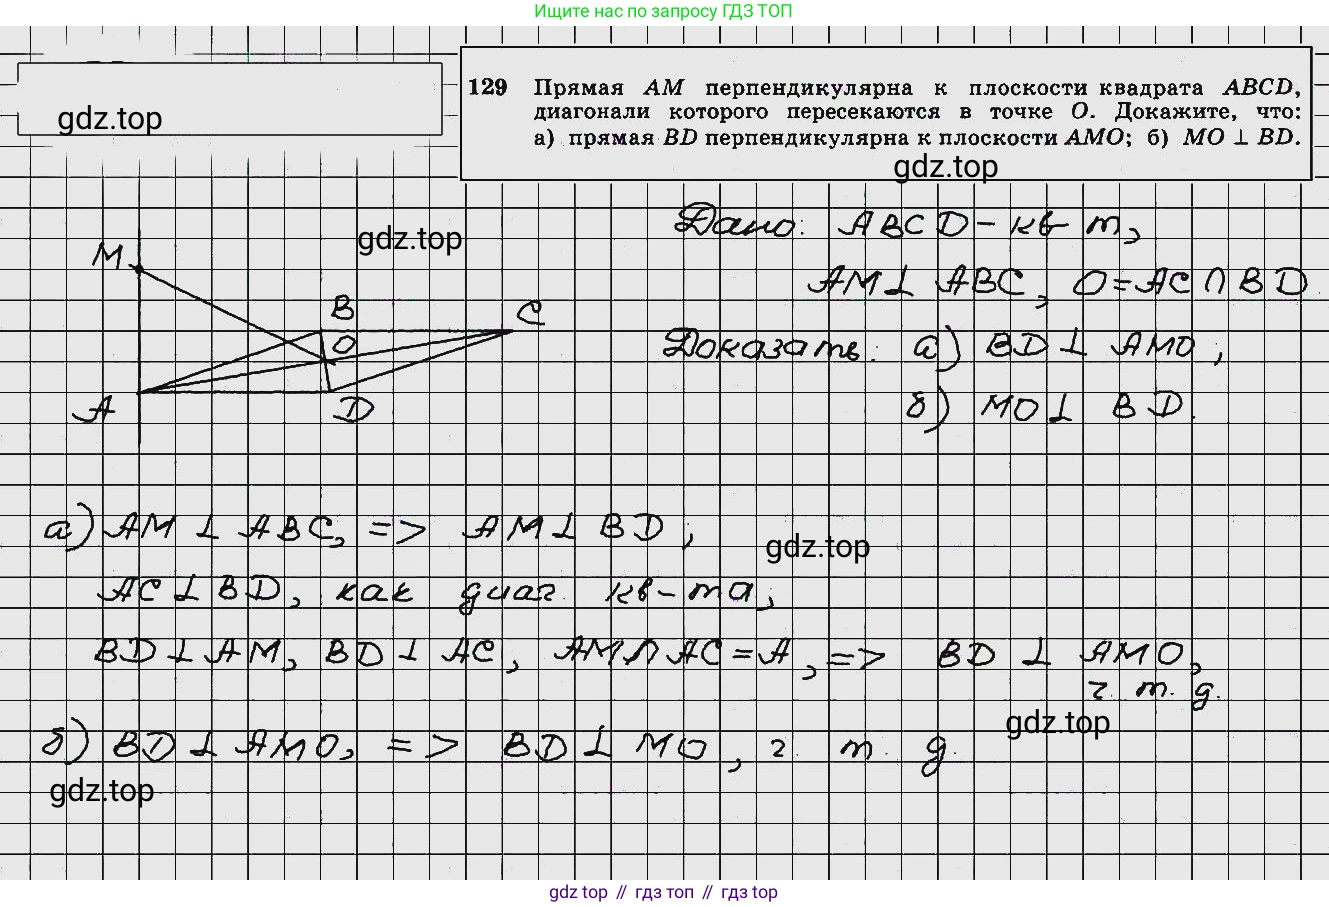 Ищите нас по запросу ГДЗ ТОП
129 Прямая AM перпендикулярна к плоскости квадрата ABCD,
диагонали которого пересекаются в точке O. Докажите, что:
а) прямая BD перпендикулярна к плоскости AMO; б) MO ⊥ BD.
gdz.top
gdz.top
Дано: ABCD - кв-т,
gdz.top
AM ⊥ ABC, O = AC ∩ BD
M
B
C
O
A
D
Доказать: а) BD ⊥ AMO,
б) MO ⊥ BD.
а) AM ⊥ ABC, => AM ⊥ BD;
gdz.top
AC ⊥ BD, как диаг. кв-та;
BD ⊥ AM, BD ⊥ AC, AM ∩ AC = A, => BD ⊥ AMO,
ч. т. д.
gdz.top
б) BD ⊥ AMO, => BD ⊥ MO, ч. т. д.
gdz.top
gdz top // гдз топ // gdz top